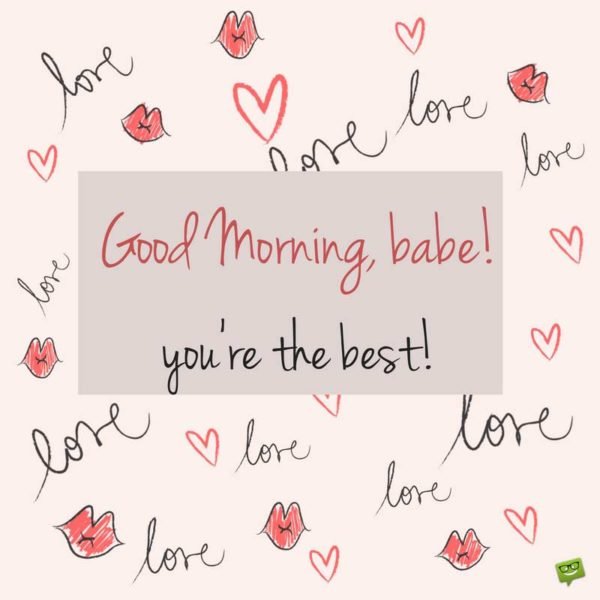 love
love
love
love
Good Morning, babe!
love
you're the best!
love
love
love
love
love